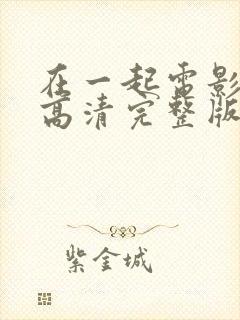 在一起电影
高清完整版
紫金城